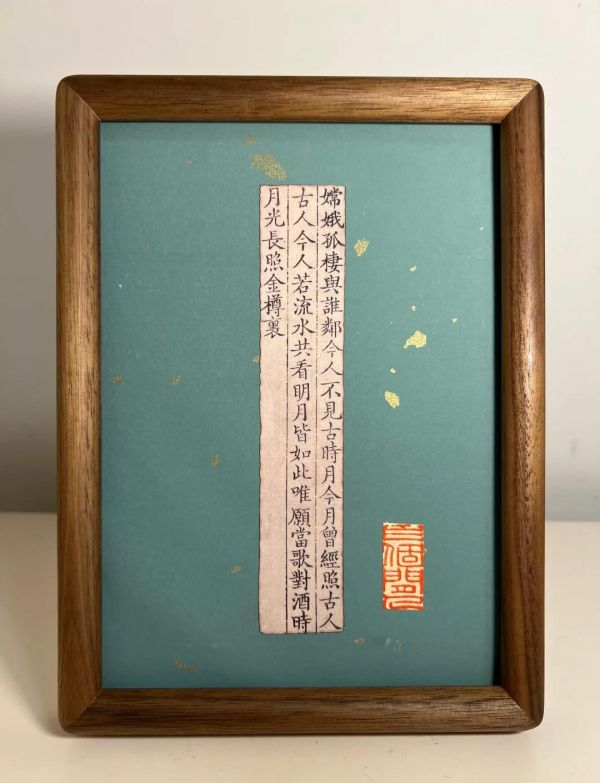 嫦娥孤棲與誰鄰今人不見古時月今月曾經照古人
古人今人若流水共看明月皆如此唯願當歌對酒時
月光長照金樽裏